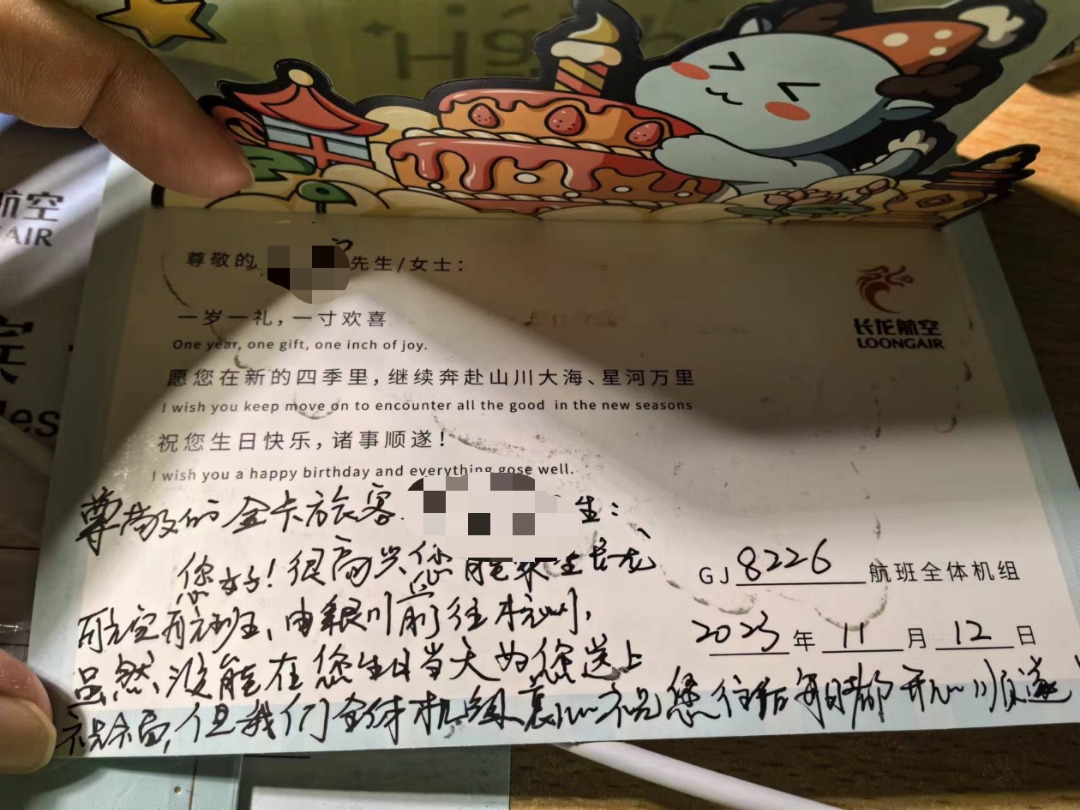 Há
航空
AIR
尊敬的 先生/女士：
一岁一礼，一寸欢喜
One year, one gift, one inch of joy.
长龙航空
LOONGAIR
愿您在新的四季里，继续奔赴山川大海、星河万里
I wish you keep move on to encounter all the good in the new seasons
祝您生日快乐，诸事顺遂！
I wish you a happy birthday and everything gose well.
尊敬的金卡旅客 生：
您好！很高兴您能乘坐长龙
航空航班，由银川前往杭州，
虽然没能在您生日当天为您送上
祝福，但我们全体机组衷心祝您往后每日都开心顺遂！
GJ 8226 航班全体机组
2023 年 11 月 12 日